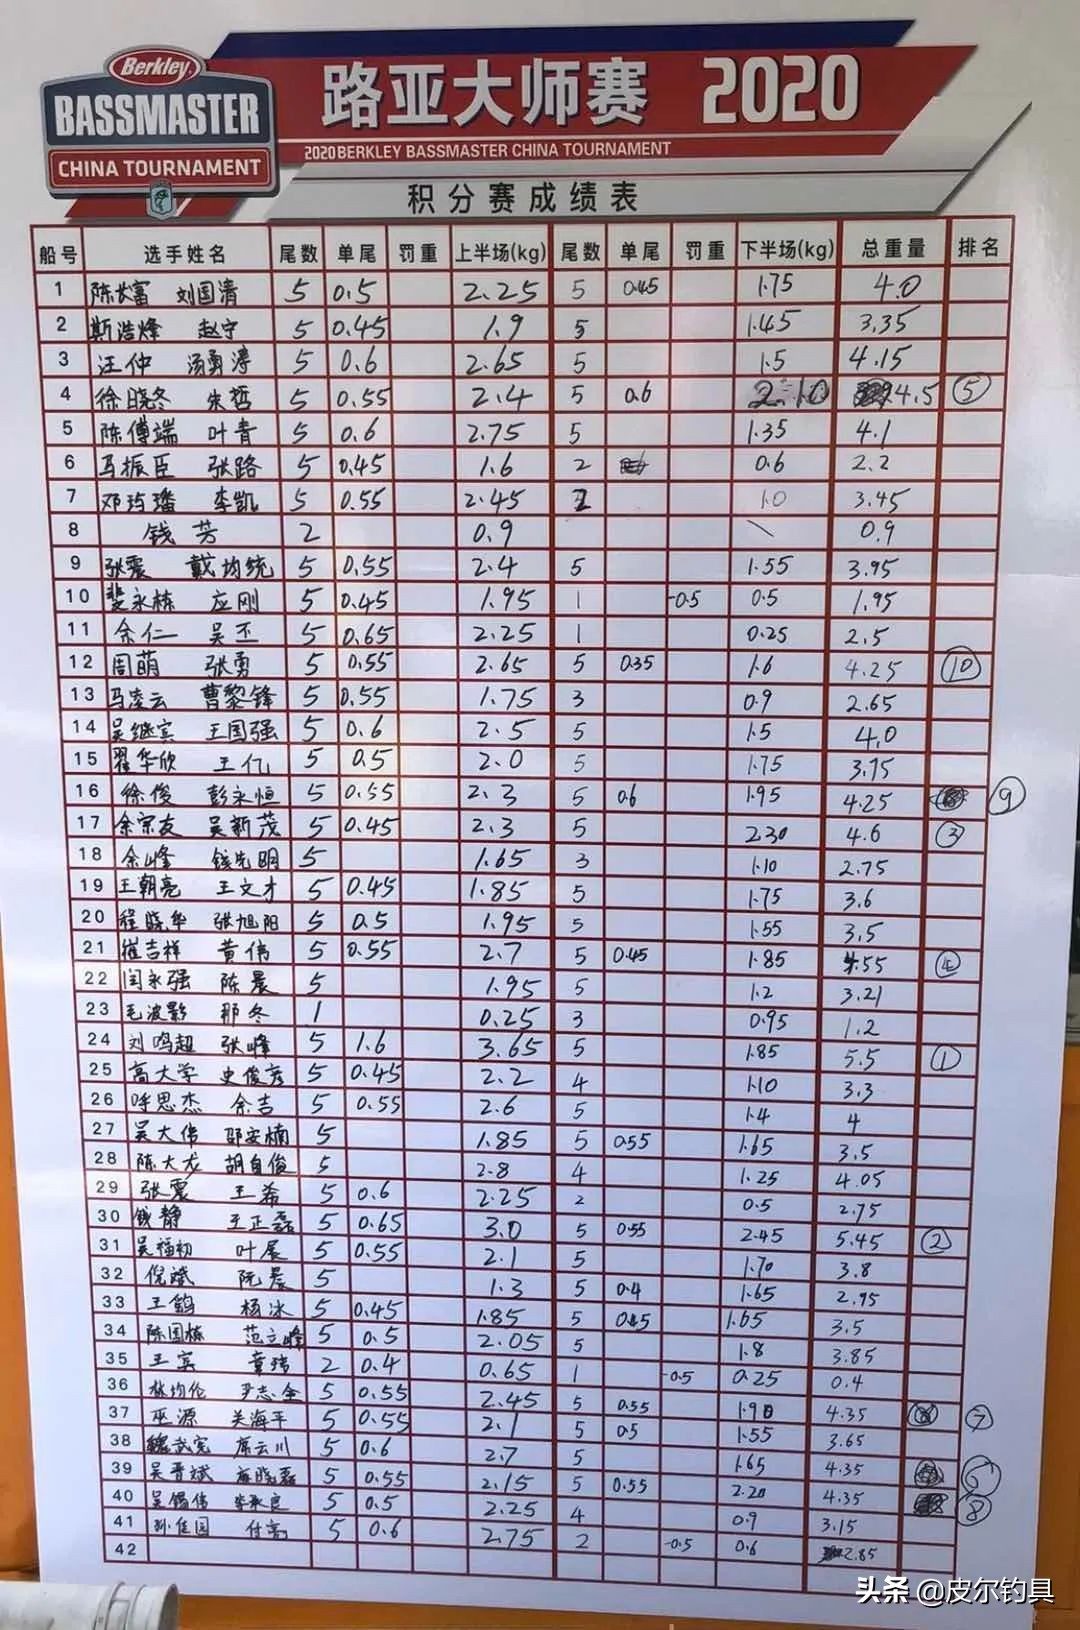 Berkley
BASSMASTER
CHINA TOURNAMENT
路亚大师赛 2020
2020 BERKLEY BASSMASTER CHINA TOURNAMENT
积分赛成绩表
船号 选手姓名 尾数 单尾 罚重 上半场(kg) 尾数 单尾 罚重 下半场(kg) 总重量 排名
1 陈长富 刘国清 5 0.5 2.25 5 0.45 1.75 4.0
2 斯浩烽 赵宁 5 0.45 1.9 5 1.45 3.35
3 汪仲 汤勇涛 5 0.6 2.65 5 1.5 4.15
4 徐晓冬 朱哲 5 0.55 2.4 5 0.6 2.10 4.5 ⑤
5 陈傅端 叶青 5 0.6 2.75 5 1.35 4.1
6 马振臣 张路 5 0.45 1.6 2 0.6 2.2
7 李凯 5 0.55 2.45 2 1.0 3.45
8 钱芳 2 0.9 \ 0.9
9 张震 戴均统 5 0.55 2.4 5 1.55 3.95
10 斐永栋 应刚 5 0.45 1.95 1 -0.5 0.5 1.95
11 余仁 吴丕 5 0.65 2.25 1 0.25 2.5
12 周萌 张勇 5 0.55 2.65 5 0.35 1.6 4.25 ⑩
13 马凌云 曹黎锋 5 0.55 1.75 3 0.9 2.65
14 吴继宾 王国强 5 0.6 2.5 5 1.5 4.0
15 翟华欣 王亿 5 0.5 2.0 5 1.75 3.75
16 徐俊 彭永恒 5 0.55 2.3 5 0.6 1.95 4.25 ⑨
17 余宗友 吴新茂 5 0.45 2.3 5 2.30 4.6 ③
18 余峰 钱先明 5 1.65 3 1.10 2.75
19 王朝亮 王文才 5 0.45 1.85 5 1.75 3.6
20 程晓华 张旭阳 5 0.5 1.95 5 1.55 3.5
21 崔吉祥 黄伟 5 0.55 2.7 5 0.45 1.85 4.55 ④
22 闫永强 陈晨 5 1.95 5 1.2 3.21
23 毛波影 那冬 1 0.25 3 0.95 1.2
24 刘鸣超 张峰 5 1.6 3.65 5 1.85 5.5 ①
25 高大学 史俊彦 5 0.45 2.2 4 1.10 3.3
26 呼思杰 余吉 5 0.55 2.6 5 1.4 4
27 吴大伟 邵安楠 5 1.85 5 0.55 1.65 3.5
28 陈大龙 胡自俊 5 2.8 4 1.25 4.05
29 张震 王希 5 0.6 2.25 2 0.5 2.75
30 钱静 王正磊 5 0.65 3.0 5 0.55 2.45 5.45 ②
31 吴福初 叶展 5 0.55 2.1 5 1.70 3.8
32 倪斌 阮晨 5 1.3 5 0.4 1.65 2.95
33 王鹤 杨冰 5 0.45 1.85 5 0.45 1.65 3.5
34 陈国栋 范立峰 5 0.5 2.05 5 1.8 3.85
35 王宾 童玮 2 0.4 0.65 1 -0.5 0.25 0.4
36 林均伦 尹志全 5 0.55 2.45 5 0.55 1.90 4.35 ⑦
37 巫源 关海平 5 0.55 2.1 5 0.5 1.55 3.65
38 魏武宪 席云川 5 0.6 2.7 5 1.65 4.35 ⑥
39 吴晋斌 5 0.55 2.15 5 0.55 2.20 4.35 ⑧
40 吴锡伟 李承良 5 0.5 2.25 4 0.9 3.15
41 孙佳园 付高 5 0.6 2.75 2 -0.5 0.6 2.85
42
头条 @皮尔钓具